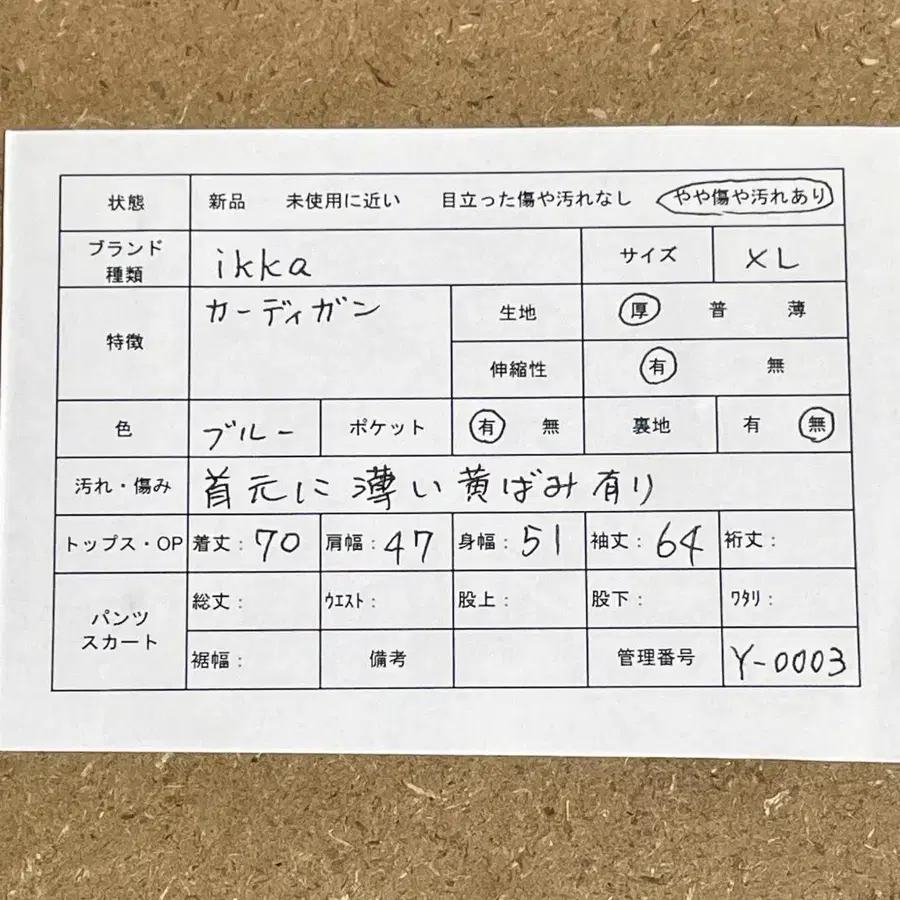 状態 新品 未使用に近い 目立った傷や汚れなし やや傷や汚れあり
ブランド
種類 ikka サイズ XL
特徴 カーディガン 生地 厚 普 薄
伸縮性 有 無
色 ブルー ポケット 有 無 裏地 有 無
汚れ・傷み 首元に薄い黄ばみ有り
トップス・OP 着丈: 70 肩幅: 47 身幅: 51 袖丈: 64 裄丈:
パンツ
スカート 総丈: ウエスト: 股上: 股下: ワタリ:
裾幅: 備考 管理番号 Y-0003